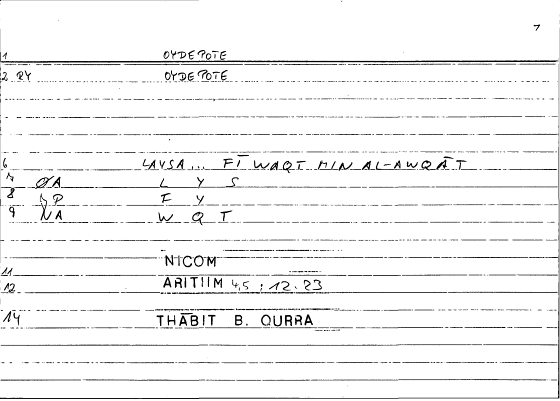 7
1 OYDEPOTE
2 RY OYDEPOTE
6 LAYSA... FĪ WAQT MIN AL-AWQĀT
7 ØA L Y S
8 P F Y
9 NA W Q T
NICOM
11
12 ARITIIM 4,5 ; 12.23
14 THĀBIT B. QURRA